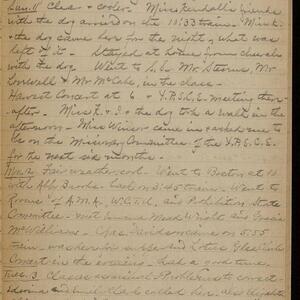 Sun. 11 Clear + cooler. Miss Kendall's friends
with the dog arrived on the 10:33 train. Miss K
+ the dog came here for the night, what was
left of it. Stayed at home from church
with the dog. Went to S.S. Mr Stearns, Mr
Lordwell + Mr McCabe, in the class.
Harvest Concert at 6 + Y.P.S.C.E. meeting there-
after. Miss F. + I + the dog took a walk in the
afternoon. Miss Winsor came in + asked me to
be on the Missionary Committee of the Y.P.S.C.E.
for the next six months.
Mon. 2 Fair weather cool. Went to Boston at 10.
with Abbie Banks. Back on 3:45 train. Went to
Rooms of A.M.A., W.C.T.U. and Prohibition State
Committee. Met Maud Wright and
McWilliams. came on 5:55
train. was here for supper and Glee Club
Concert in the evening. Had a good time.
Tues. 3 Classes as usual. Prohibition to correct.
called here. Also